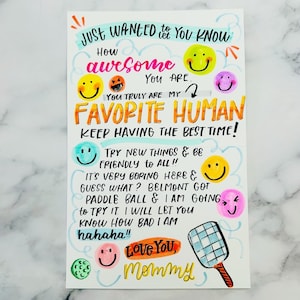 JUST WANTED to let YOU KNOW
HOW
awesome
YOU ARE
YOU TRULY ARE MY
FAVORITE HUMAN
KEEP HAVING THE BEST TIME!
TRY NEW THINGS & BE
FRIENDLY TO ALL!!
IT'S VERY BORING HERE &
GUESS WHAT? BELMONT GOT
PADDLE BALL & I AM GOING
to TRY IT I WILL LET YOU
KNOW HOW BAD I AM
hahaha!!
LOVE YOU,
Mommy